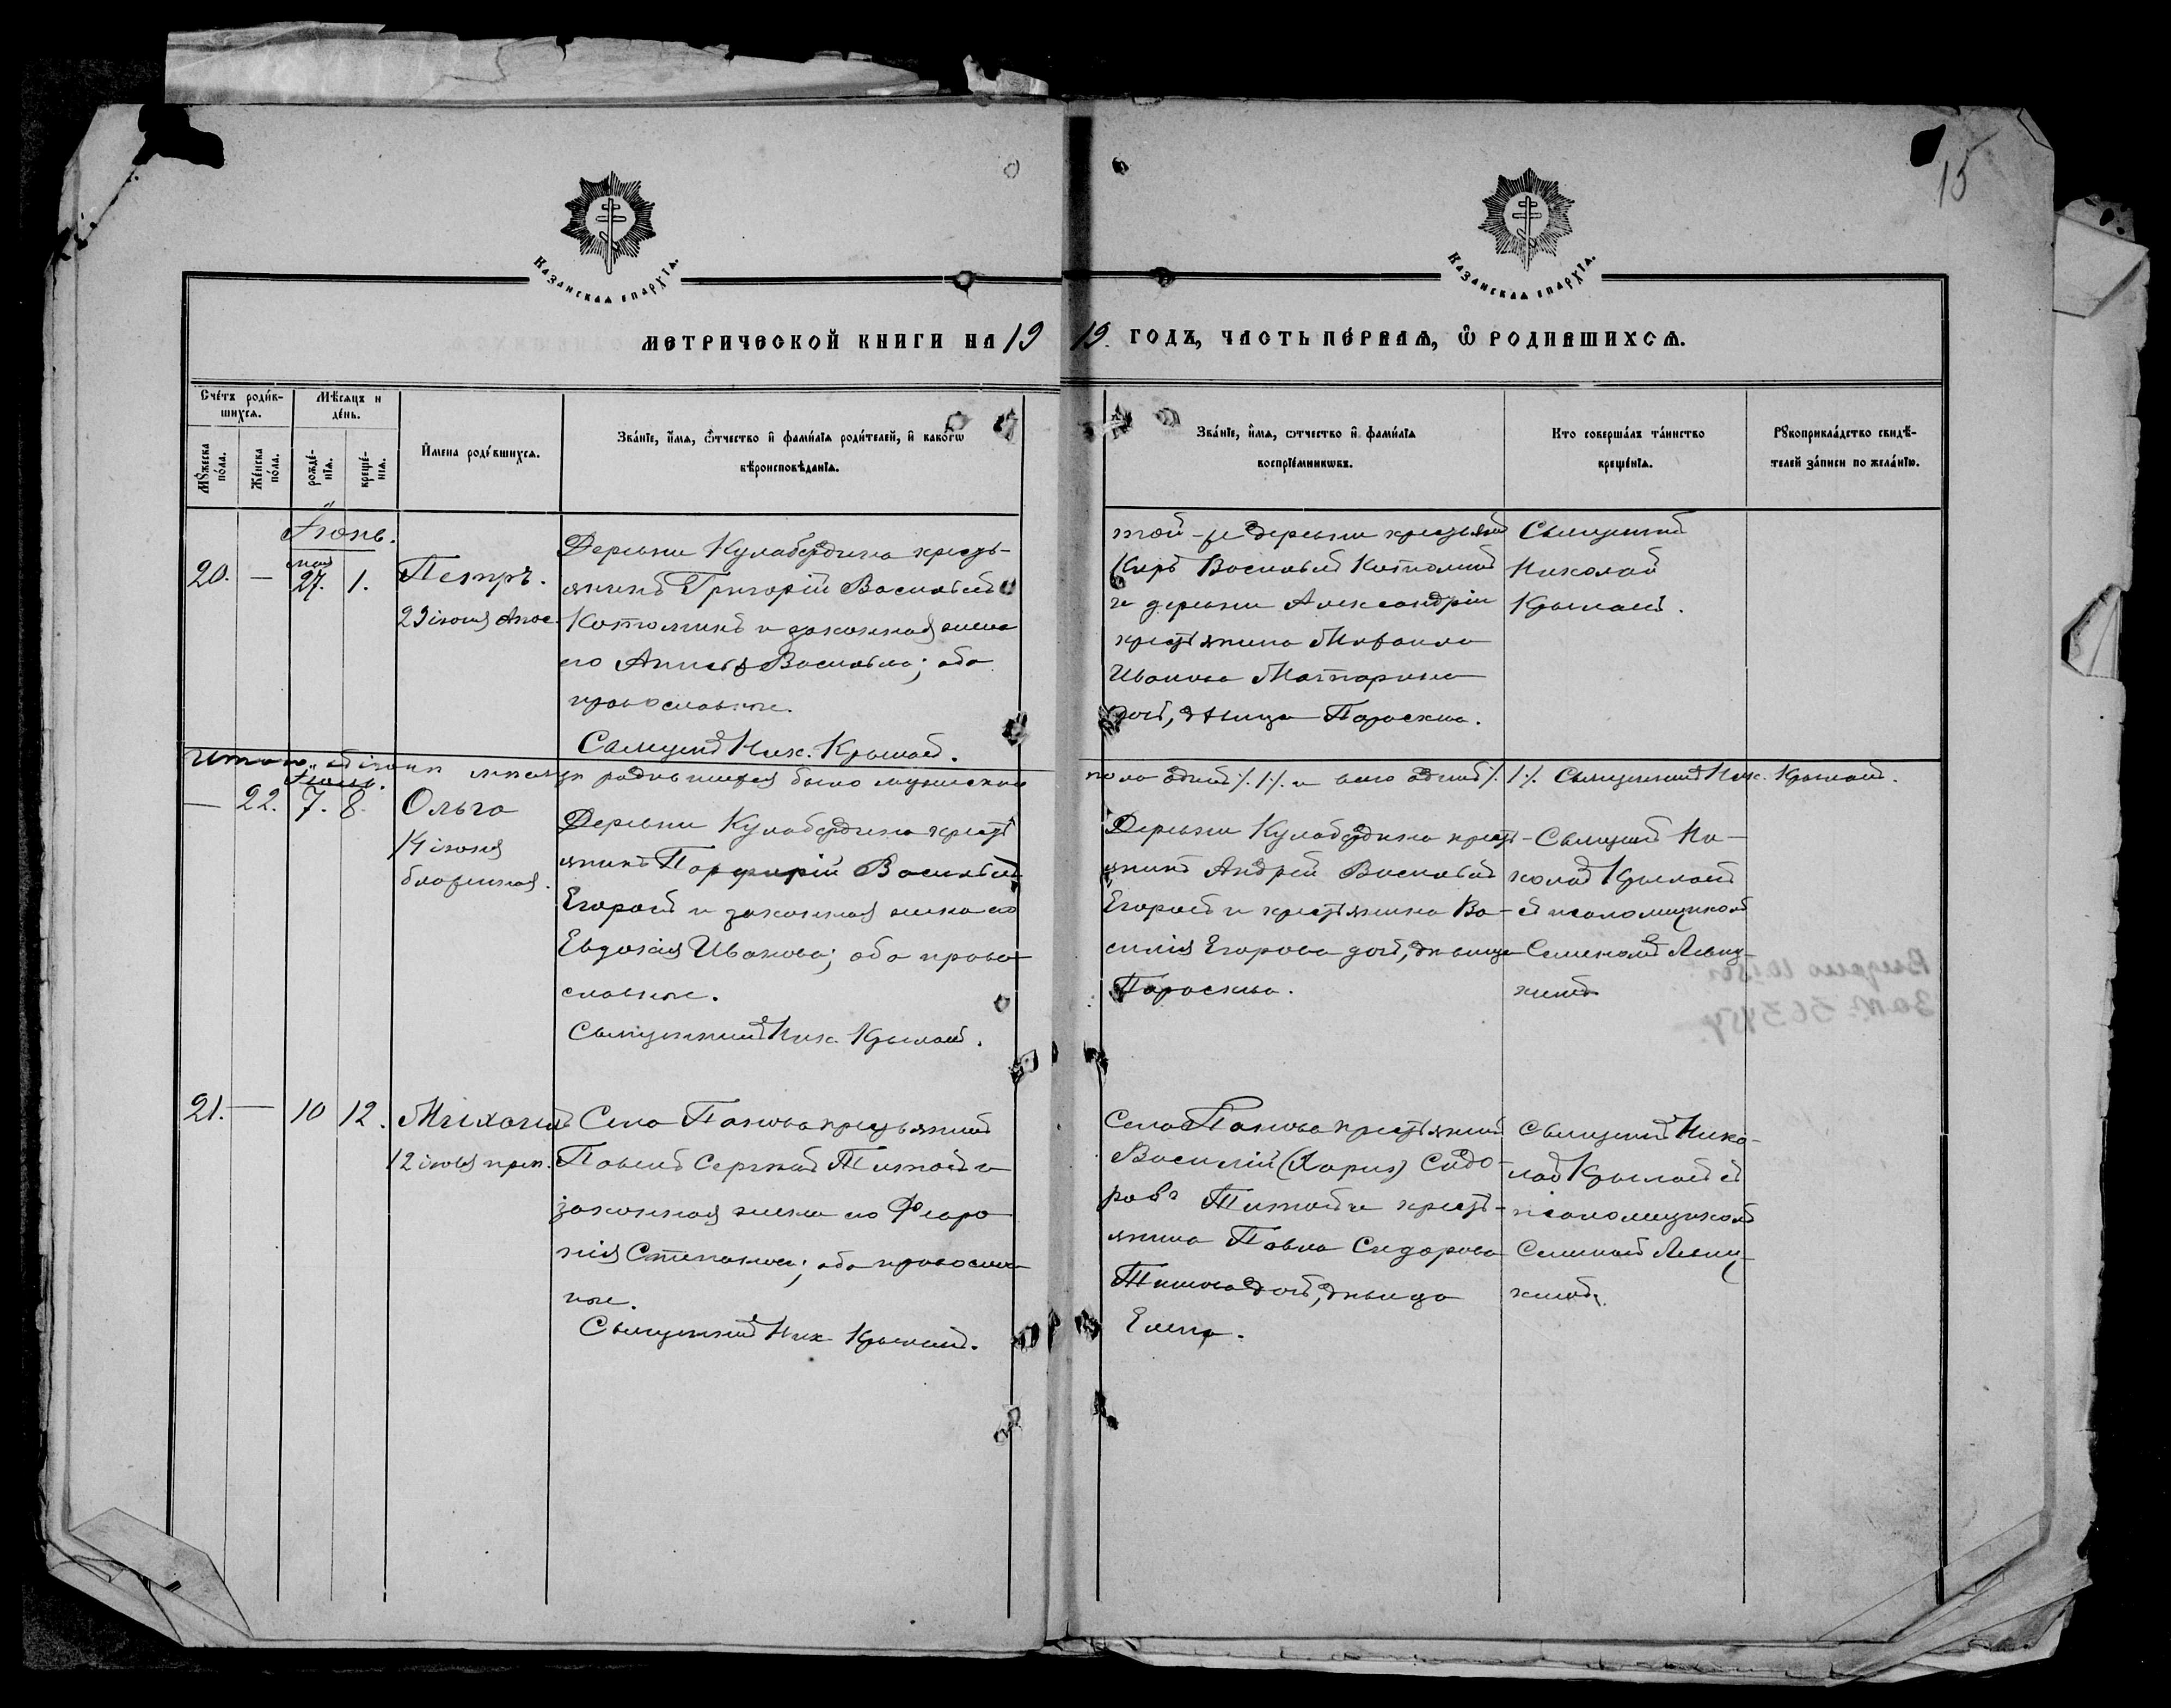 15
Казанская епархїа.
Казанская епархїа.
МЕТРИЧЕСКОЙ КНИГИ НА 19
19. ГОДЪ, ЧАСТЬ ПЕ́РВАѦ, Ѽ РОДИВШИХСѦ.
Сче́тъ роди́в-
шихсѧ.
Мѣ́сѧцъ и
де́нь.
Мꙋ́жеска
по́ла.
Же́нска
по́ла.
рожде́-
нїѧ.
креще́-
нїѧ.
И҆мена роди́вшихсѧ.
Зва́нїе, и҆́мѧ, ѻ҆́тчество и҆ фами́лїѧ роди́телей, и҆ како́гѡ
вѣроисповѣ́данїѧ.
Зва́нїе, и҆́мѧ, ѻ҆тчество и҆ фами́лїѧ
воспрїе́мникѡвъ.
Кто соверша́лъ та́инство
креще́нїѧ.
Рꙋкоприкла́дство свидѣ́-
телей за́писи по жела́нїю.
Іюнь.
20. — мая 27. 1.
Петръ.
29 іюня Апос.
Деревни Кулабердина кресть-
янинъ Григорій Васильевъ
Котюминъ и законная жена
его Анисья Васильева; оба
православные.
Священникъ Ник. Крылов.
той-же деревни крестьянинъ
Киръ Васильевъ Котюминъ
и деревни Александріи
крестьянина Михаила
Иванова
дочь, дѣвица Параскева.
Священникъ
Николай
Крыловъ.
Итого въ іюнѣ мѣсяцѣ родившихся было мужескаго
пола одинъ /.1/. и всего одинъ /.1/. Священникъ Ник. Крылов.
Іюль.
— 22. 7. 8.
Ольга
14 іюля
Деревни Кулабердина кресть
янинъ Порфирій Васильевъ
Егоровъ и законная жена его
Евдокія Иванова; оба право-
славные.
Священникъ Ник. Крылов.
Деревни Кулабердина кресть-
янинъ Андрей Васильевъ
Егоровъ и крестьянина Ва-
силія Егорова дочь, дѣвица
Параскева.
Священникъ Ни-
колай Крыловъ
съ псаломщикомъ
Семеномъ
21. — 10 12.
Михаилъ
12 іюля преп.
Села Панова крестьянинъ
Павелъ Сергѣевъ Титовъ и
законная жена его Февро-
нія Степанова; оба православ-
ные.
Священникъ Ник Крылов.
Села Панова крестьянинъ
Василій Сидо-
ровъ Титовъ и кресть-
янина Павла Сидорова
Титова дочь, дѣвица
Елена.
Священникъ Нико-
лай Крыловъ съ
псаломщикомъ
Семеномъ